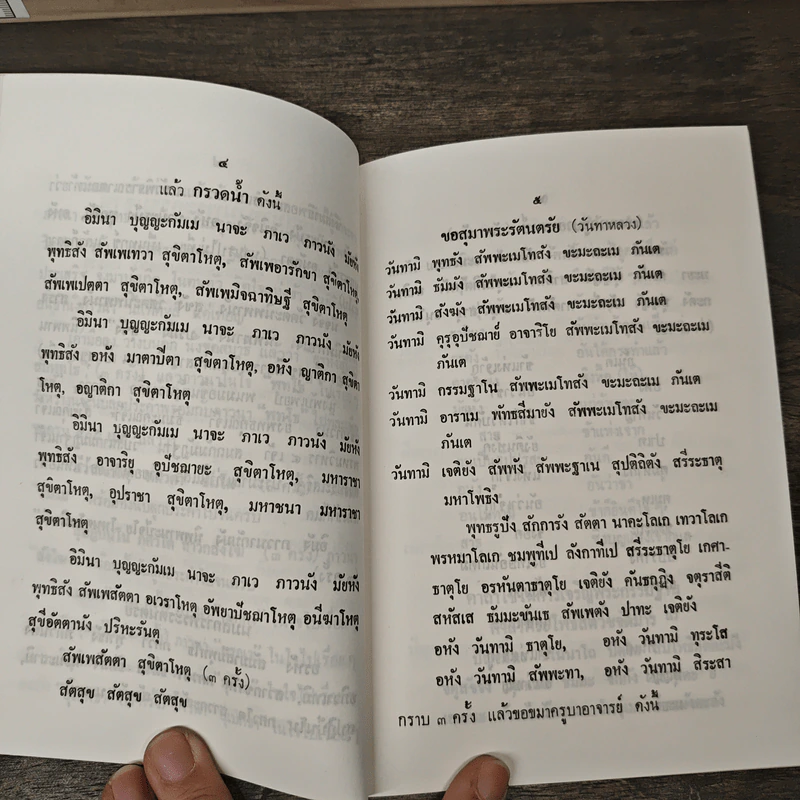 ๔
แล้ว กรวดน้ำ ดังนี้
อิมินา บุญญะกัมเม นาจะ ภาเว ภาวนัง มัยหัง
พุทธิสัง สัพเพเทวา สุขิตาโหตุ, สัพเพอารักขา สุขิตาโหตุ
สัพเพเปตตา สุขิตาโหตุ, สัพเพมิจฉาทิษฐี สุขิตาโหตุ
อิมินา บุญญะกัมเม นาจะ ภาเว ภาวนัง มัยหัง
พุทธิสัง อหัง มาตาปีตา สุขิตาโหตุ, อหัง ญาติกา สุขิตา
โหตุ, อญาติกา สุขิตาโหตุ
อิมินา บุญญะกัมเม นาจะ ภาเว ภาวนัง มัยหัง
พุทธิสัง อาจาริยุ อุปัชฌายะ สุขิตาโหตุ, มหาราชา
สุขิตาโหตุ, อุปราชา สุขิตาโหตุ, มหาชนา มหาราชา
สุขิตาโหตุ
อิมินา บุญญะกัมเม นาจะ ภาเว ภาวนัง มัยหัง
พุทธิสัง สัพเพสัตตา อเวราโหตุ อัพยาปัชฌาโหตุ อนีฆาโหตุ
สุขีอัตตานัง ปริหะรันตุ
สัพเพสัตตา สุขิตาโหตุ (๓ ครั้ง)
สัตสุข สัตสุข สัตสุข
๕
ขอสุมาพระรัตนตรัย (วันทาหลวง)
วันทามิ พุทธัง สัพพะเมโทสัง ขะมะถะเม ภันเต
วันทามิ ธัมมัง สัพพะเมโทสัง ขะมะถะเม ภันเต
วันทามิ สังฆัง สัพพะเมโทสัง ขะมะถะเม ภันเต
วันทามิ คุรุอุปัชฌาย์ อาจาริโย สัพพะเมโทสัง ขะมะถะเม
ภันเต
วันทามิ กรรมฐาโน สัพพะเมโทสัง ขะมะถะเม ภันเต
วันทามิ อาราเม พัทธสีมายัง สัพพะเมโทสัง ขะมะถะเม
ภันเต
วันทามิ เจติยัง สัพพัง สัพพะฐาเน สุปติถิตัง สรีระธาตุ
มหาโพธิง
พุทธรูปัง สักการัง สัตตา นาคะโลเก เทวาโลเก
พรหมาโลเก ชมพูทีเป ลังกาทีเป สรีระธาตุโย เกศา-
ธาตุโย อรหันตาธาตุโย เจติยัง คันธกุฏิง จตุราสีติ
สหัสเส ธัมมะขันเธ สัพเพตัง ปาทะ เจติยัง
อหัง วันทามิ ธาตุโย, อหัง วันทามิ ทุระโส
อหัง วันทามิ สัพพะทา, อหัง วันทามิ สิระสา
กราบ ๓ ครั้ง แล้วขอขมาครูบาอาจารย์ ดังนี้